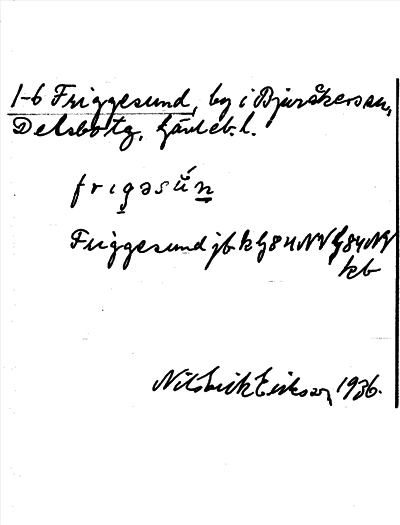 1-6 Friggesund, by i Bjuråkers sn,
Delsbo tg, Gävleb. l.
frigəsún
Friggesund jb. k G84NV G84NV
kb
Nils Erik Eriksson, 1936.